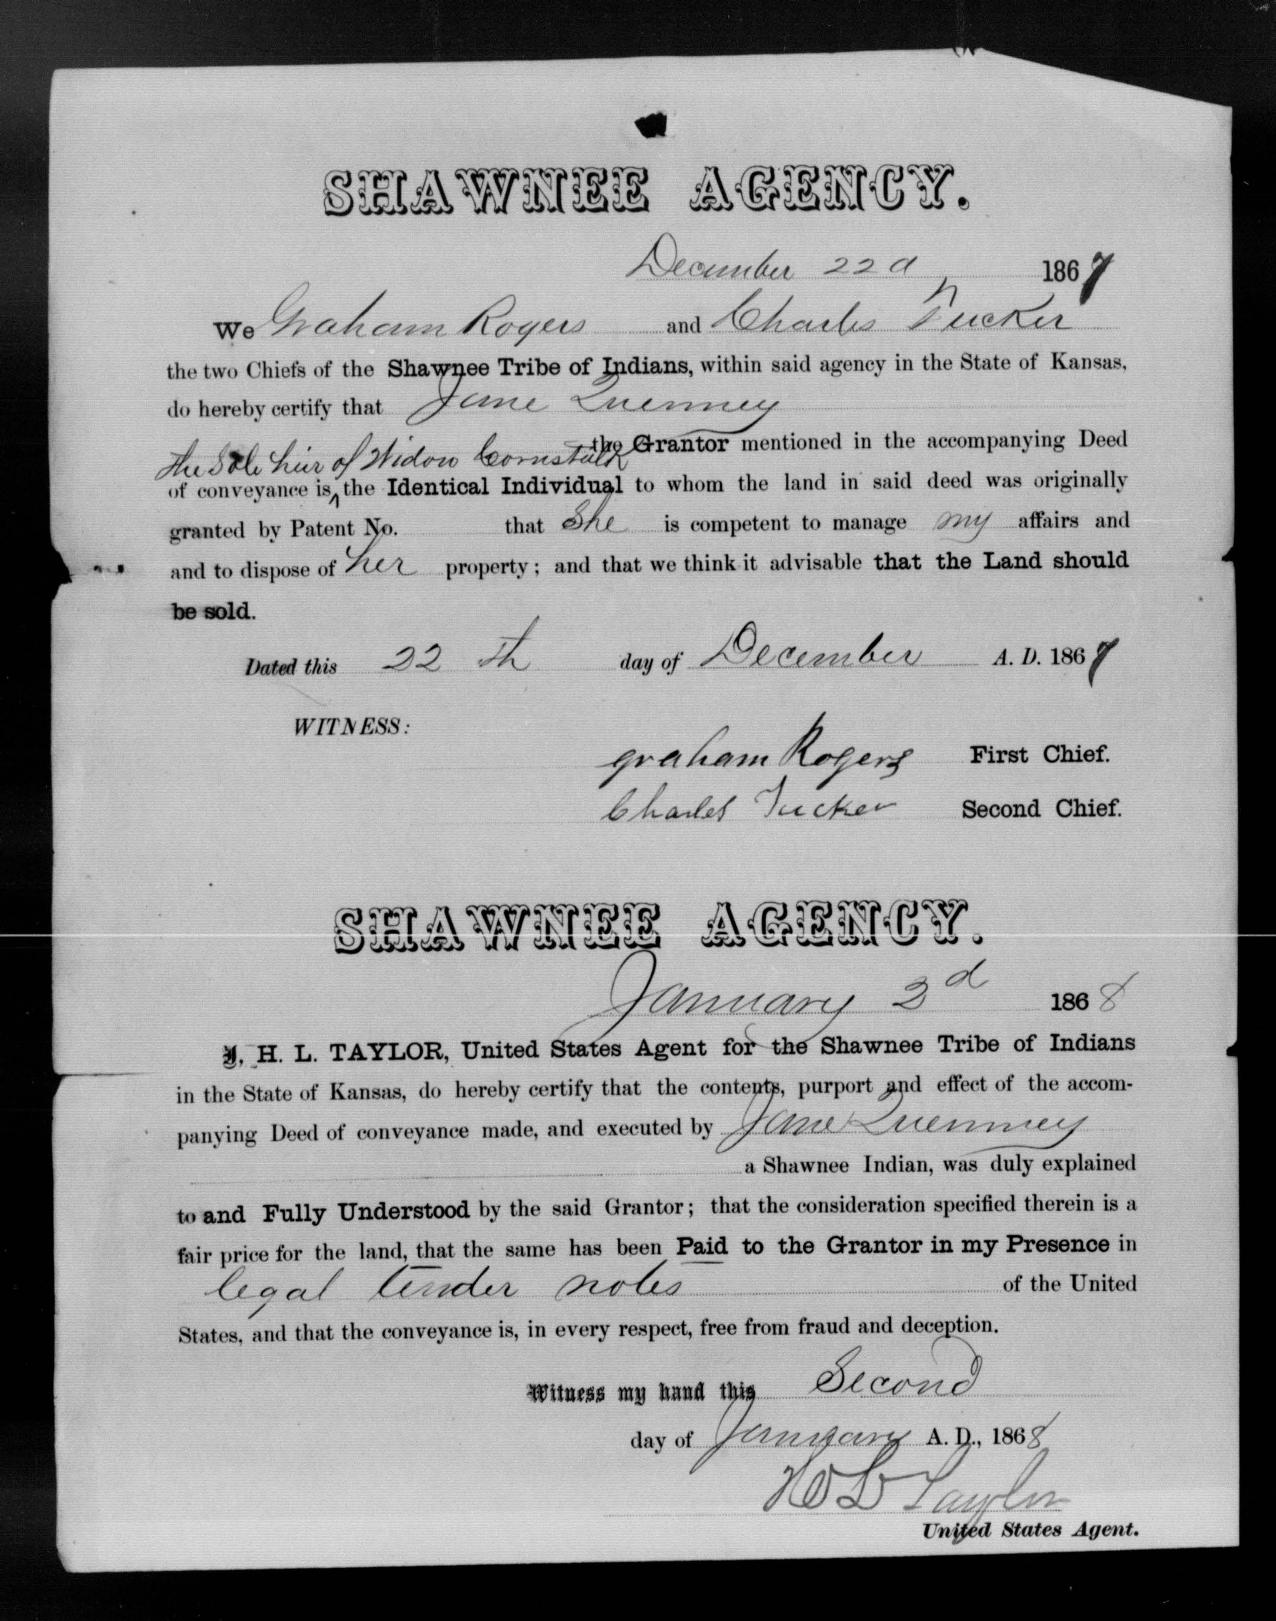 SHAWNEE AGENCY.
December 22d 1867
We Graham Rogers and Charles Tucker
the two Chiefs of the Shawnee Tribe of Indians, within said agency in the State of Kansas,
do hereby certify that Jane Quenney
the Grantor mentioned in the accompanying Deed
the Sole heir of Widow Cornstalk
of conveyance is ‸ the Identical Individual to whom the land in said deed was originally
granted by Patent No. that She is competent to manage my affairs and
and to dispose of her property; and that we think it advisable that the Land should
be sold.
Dated this 22 th day of December A. D. 1867
WITNESS:
graham Rogers First Chief.
Charles Tucker Second Chief.
SHAWNEE AGENCY.
January 2d 1868
I, H. L. TAYLOR, United States Agent for the Shawnee Tribe of Indians
in the State of Kansas, do hereby certify that the contents, purport and effect of the accom-
panying Deed of conveyance made, and executed by Jane Quenney
a Shawnee Indian, was duly explained
to and Fully Understood by the said Grantor; that the consideration specified therein is a
fair price for the land, that the same has been Paid to the Grantor in my Presence in
legal tender notes of the United
States, and that the conveyance is, in every respect, free from fraud and deception.
Witness my hand this Second
day of January A. D., 1868
H L Taylor
United States Agent.